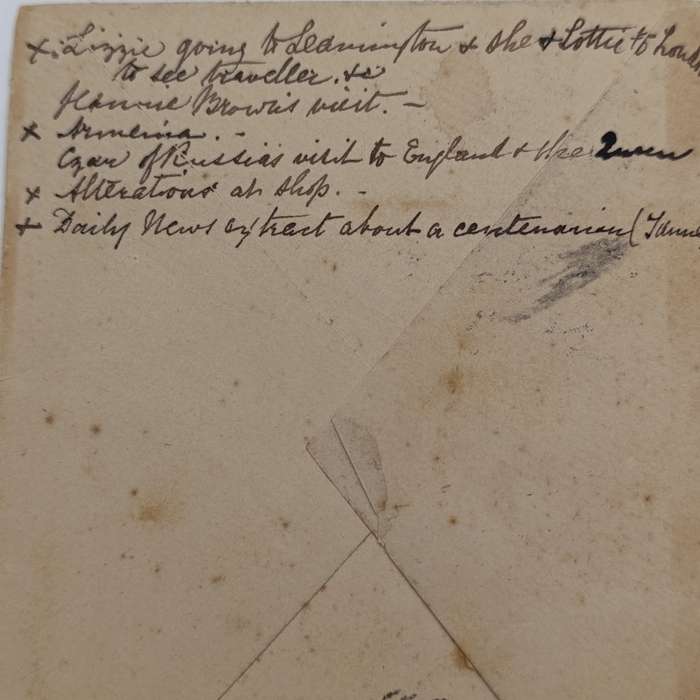 x. Lizzie going to Leamington & she & Lottie to Lond
to see traveller. &c
Hannie Brown's visit. –
x Armenia. –
Czar of Russia's visit to England & the Queen
x Alterations at shop. –
x Daily News extract about a centenarian (